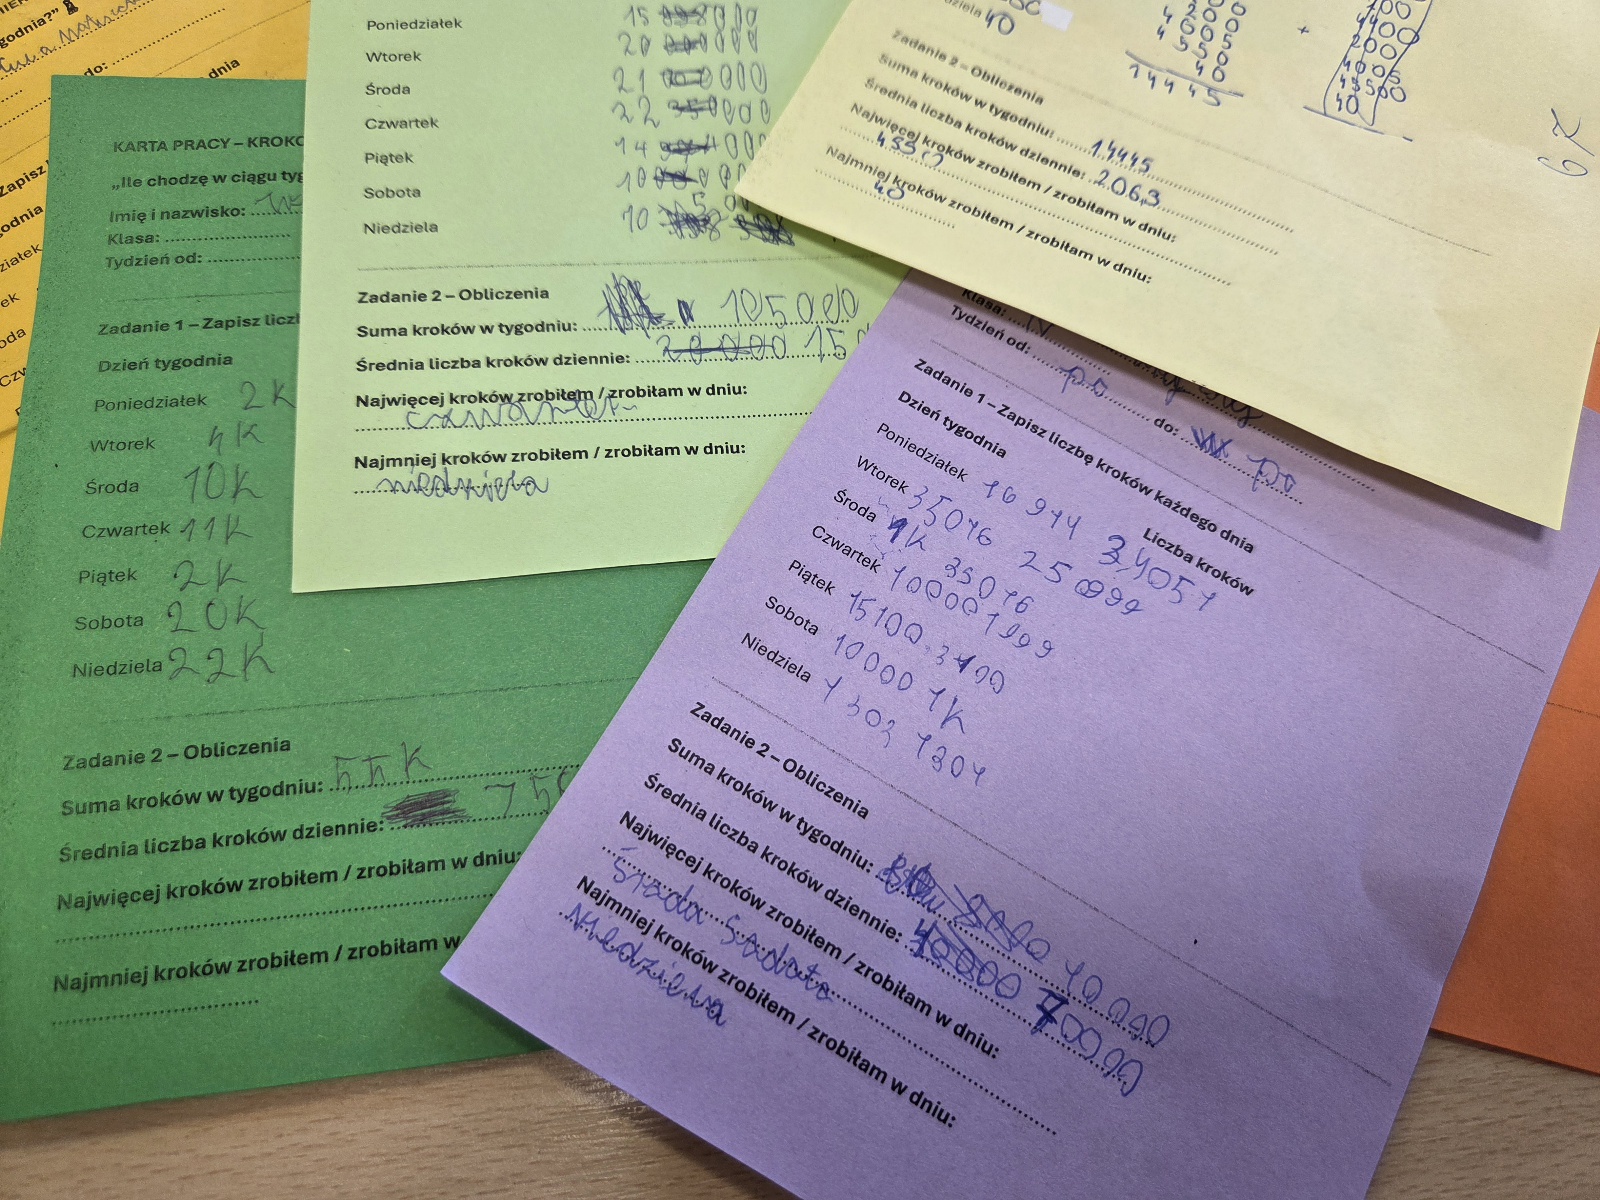 godnia?"
do:
dnia
Zapisz l
godnia
ziałek
ek
oda
Czw
KARTA PRACY – KROKO
„Ile chodzę w ciągu tyg
Imię i nazwisko:
Klasa:
Tydzień od:
Zadanie 1 – Zapisz liczb
Dzień tygodnia
Poniedziałek 2K
Wtorek 4K
Środa 10K
Czwartek 11K
Piątek 2K
Sobota 20K
Niedziela 22K
Zadanie 2 – Obliczenia
Suma kroków w tygodniu: 55K
Średnia liczba kroków dziennie: 75
Najwięcej kroków zrobiłem / zrobiłam w dniu:
Najmniej kroków zrobiłem / zrobiłam w
Poniedziałek 15 000
Wtorek 20 000
Środa 21 000
Czwartek 22 000
Piątek 14 000
Sobota 10 000
Niedziela 10
Zadanie 2 – Obliczenia
Suma kroków w tygodniu: 105000
Średnia liczba kroków dziennie: 20000 150
Najwięcej kroków zrobiłem / zrobiłam w dniu:
czwartek
Najmniej kroków zrobiłem / zrobiłam w dniu:
niedziela
dziela 40
4005
4550
40
14445
+
2000
4005
4550
40
Zadanie 2 – Obliczenia
Suma kroków w tygodniu: 14445
Średnia liczba kroków dziennie: 2063
Najwięcej kroków zrobiłem / zrobiłam w dniu:
4550
Najmniej kroków zrobiłem / zrobiłam w dniu:
40
Klasa: IV
Tydzień od: po do: po
Zadanie 1 – Zapisz liczbę kroków każdego dnia
Dzień tygodnia Liczba kroków
Poniedziałek 16 944 34051
Wtorek 35076 25999
Środa 1K 35076
Czwartek 10000 1999
Piątek 15100 3400
Sobota 10000 1K
Niedziela 1303 1304
Zadanie 2 – Obliczenia
Suma kroków w tygodniu: 10000
Średnia liczba kroków dziennie: 40000 70000
Najwięcej kroków zrobiłem / zrobiłam w dniu:
Środa Sobota
Najmniej kroków zrobiłem / zrobiłam w dniu:
Niedziela